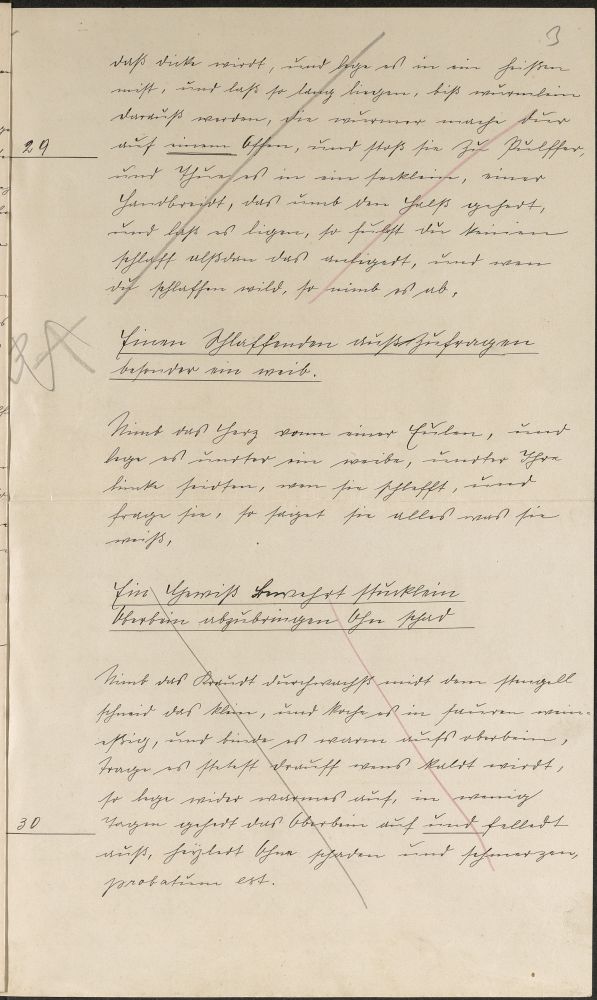 3
daß dicke wirdt, und lege es in ein heißen
mist, und laß so lang liegen, biß würmlein
darauß werden, die würmer mache dürr
29
auf einem Offen, und stoß sie zu Pulffer,
und Thue es in ein secklein, einer
Handbreidt, das umb den Halß gehedt,
und laß es ligen, so
schlaff alßdan das anligedt, und wen
du schlaffen wild, so nimb es ab,
Einen Schlaffenden außzufragen
besonder ein weib.
Nimb das Herz vonn einer Eulen, und
lege es undter ein weibe, undter Ihre
linke seidten, wen sie schlefft, und
frage sie, so saget sie alles was sie
weiß,
Ein Gewiß bewehrt stucklein
Oberbein abzubringen Ohn schad
Nimb das Kraudt durchwachß midt dem stengell
schneid das klein, und koche es in sauren wein-
eßig, und binde es warm aufs oberbein,
Trage es stetest drauff wens kaldt wirdt,
so lege wider warmes auf, in wenig
30
Tagen gehedt das Oberbein auf und felledt
auß, heyledt Ohne schaden und schmerzen,
probatum est.